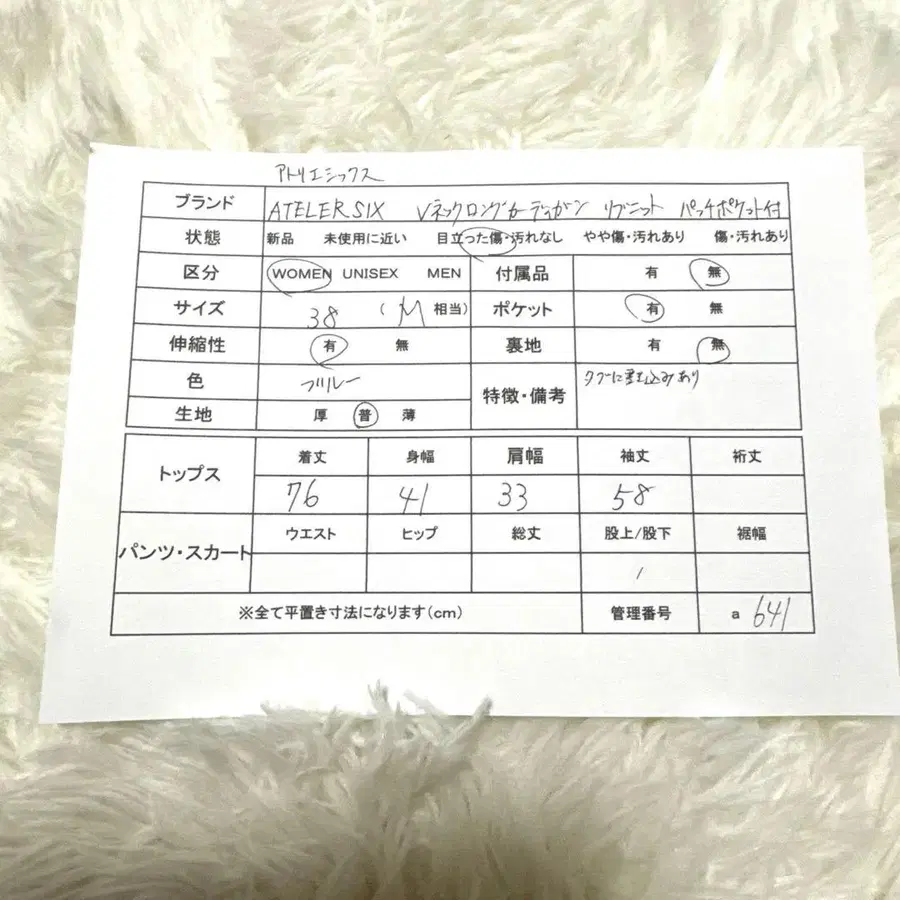 アトリエシックス
ブランド ATELERSIX Vネックロングカーディガン リブニット パッチポケット付
状態 新品 未使用に近い 目立った傷・汚れなし やや傷・汚れあり 傷・汚れあり
区分 WOMEN UNISEX MEN 付属品 有 無
サイズ 38 (M 相当) ポケット 有 無
伸縮性 有 無 裏地 有 無
色 ブルー 特徴・備考 タグに書き込みあり
生地 厚 普 薄
トップス 着丈 身幅 肩幅 袖丈 裄丈
76 41 33 58
パンツ・スカート ウエスト ヒップ 総丈 股上/股下 裾幅
/
※全て平置き寸法になります(cm) 管理番号 a 641